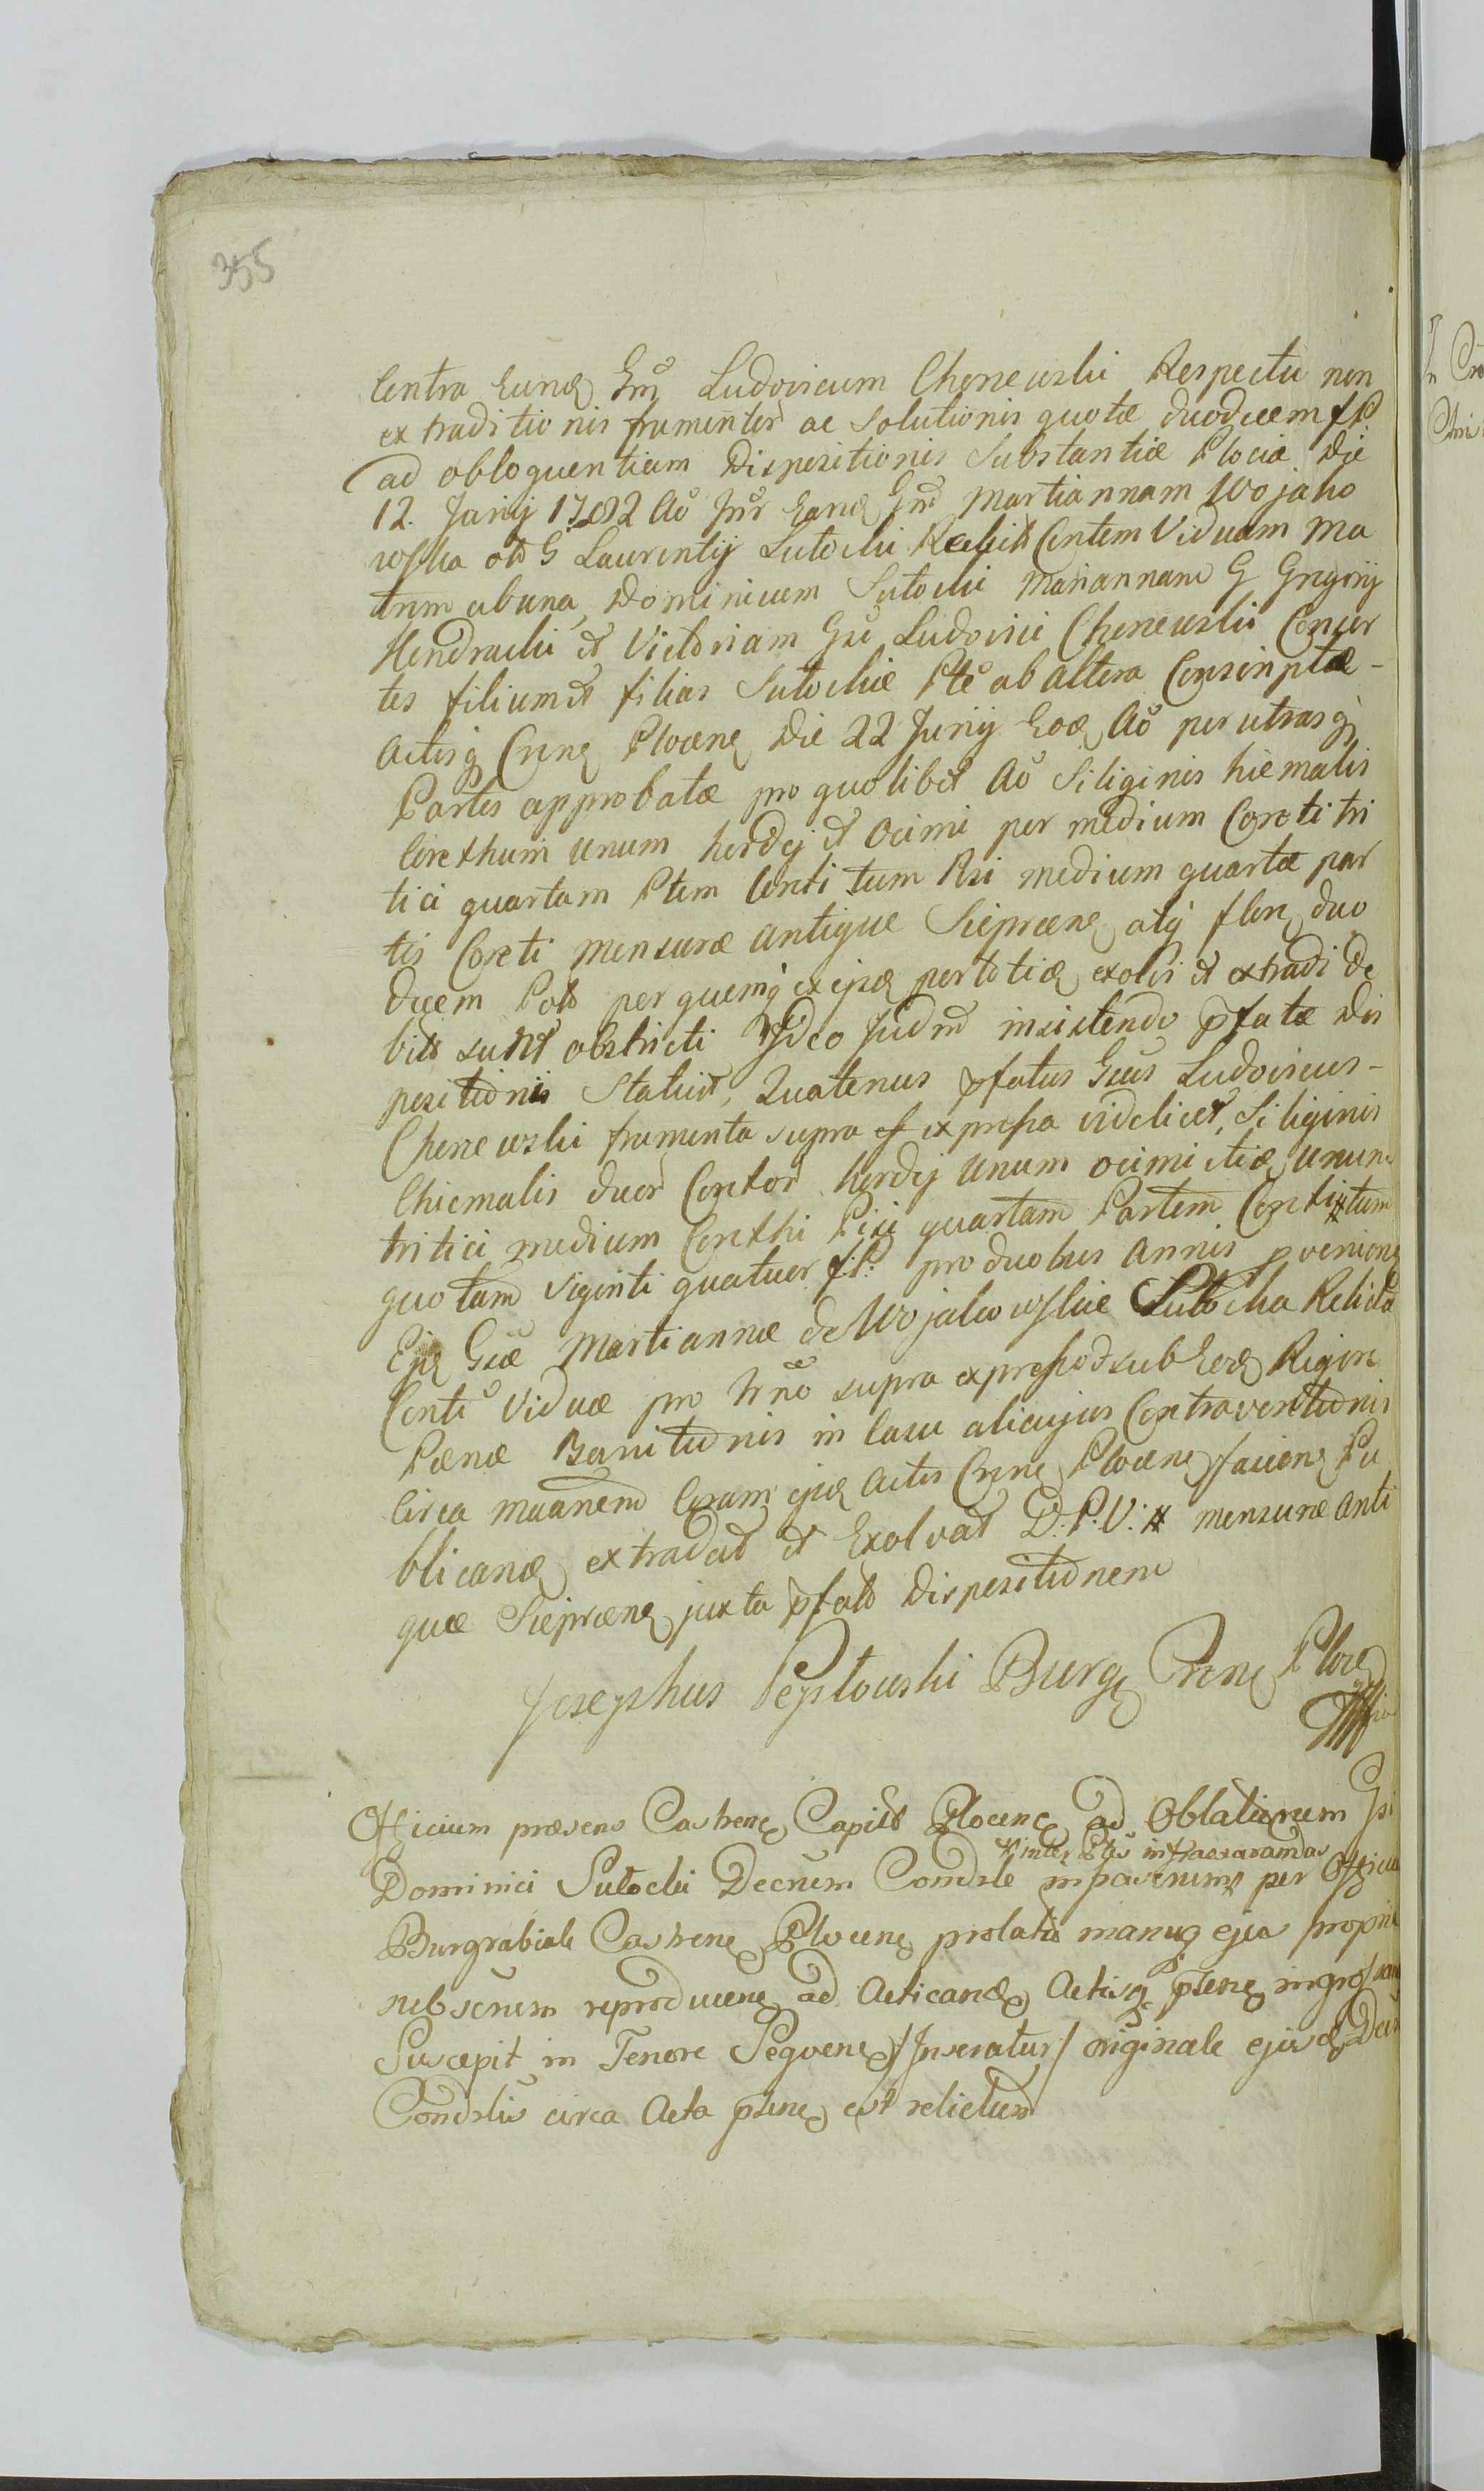 355
Contra Eund Gm Ludovicum Chenewski Respectu non
extraditionis frumentor ac solutionis quotæ duodecem fP.
ad obloquentiam Dispositionis Substantiæ Plociæ Die
12. Junij 1782 Ao Inr Eand Gm Martiannam Wojako
wska ol G Laurentij Sutocki Relict Contem Viduam Ma
trem ab una, Dominicum Sutocki Mariannam G Grigorij
Hendracki et Victoriam Gsi Ludovici Chenewski Consor
tes filium et filias Sutockie Pte ab altera Conscriptæ -
Actisq Crens Plocens Die 22 Junij Eod Ao per utrasq
Partes approbatæ pro quolibet Ao Siliginis hiemalis
Corethum unum hordej et Ocimi per medium Coreti tri
tici quartam Ptem Coreti tum Pisi medium quartæ par
tis Coreti mensuræ antiquæ Sieprcens atq flor duo
decem Pol per quemq ex ipis pertotiæ exolvi et extradi de
bit sunt obstricti Ideo Judm insistendo pfatæ Dis
positionis Statuit, Quatenus pfatus Gsus Ludovicus -
Chenewski frumenta supra expressa videlicet, Siliginis
Chiemalis duor Coretor hordej unum ocimi itid unum
tritici medium Corethi Pisi quartam Partem Coreti tum
quotam viginti quatuor f:P: pro duobus annis pveniens
Ejd Gsæ Martiannæ de Wojakowskie Sutocka Relicta
Conti Viduæ pro trno supra expresso sub Eod Rigore
Pænæ Banitionis in Casu alicujus Contraventionis
Circa muanem Coram ejus Actis Crens Plocens faciens Pu
blicand extradat et Exolvat D:P:V: mensuræ anti
quæ Sieprcens juxta pfat Dispositionem
Josephus Peptowski Burg Crens Ploce
Officium præsens Castrens Capit Plocens ad Oblationem Gsi
Dominici Sutocki Decrum Condsle inter Ptes infrascarandas
in paverums per Officiu
Burgrabiale Castrens Plocens prolatis manuq ejus propria
subscrum reproducens ad Acticand Actisq ptens ingrossand
Suscepit in Tenore Seqvens /Inseratur/ originale ejusd Decr
Condslis circa Acta ptens est relictum